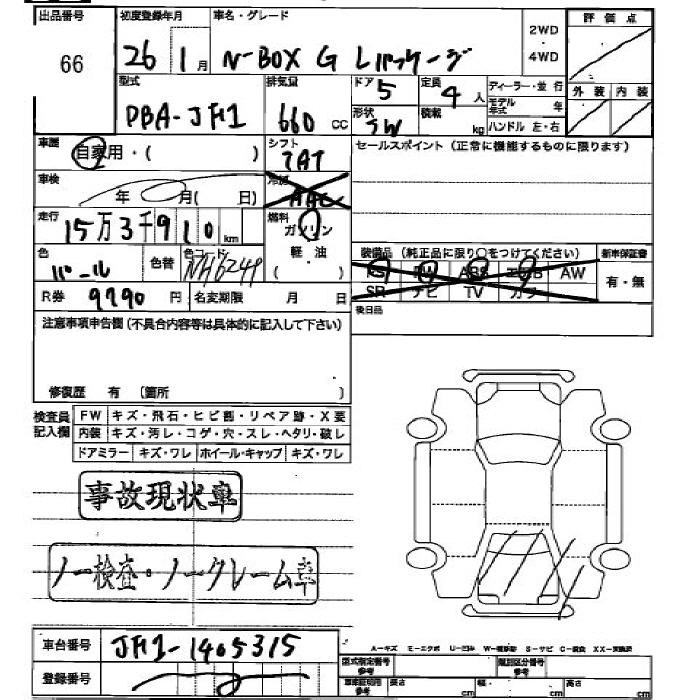 出品番号 初度登録年月 車名・グレード 2WD ・ 4WD 評価点
66 26 1月 N-BOX G Lパッケージ 外装 内装
型式 排気量 ドア 定員 ディーラー・並行
DBA-JF1 660cc 5 4人 モデル年式 年
形状 積載 kg ハンドル 左・右
車歴 自家用・( ) シフト セールスポイント（正常に機能するものに限ります）
車検 年 月( 日) 冷房 AAC
走行 15万3千910km 燃料 ガソリン 軽・油 ( )
色 パール 色替 色コード 装備品（純正品に限り○をつけてください） 新車保証書
PS PW ABS エアB AW 有・無
SR ナビ TV カワ
R券 9790円 名変期限 月 日 後日品
注意事項申告欄（不具合内容等は具体的に記入して下さい）
修復歴 有 〔箇所 〕
検査員記入欄 FW キズ・飛石・ヒビ割・リペア跡・X要
内装 キズ・汚レ・コゲ・穴・スレ・ヘタリ・破レ
ドアミラー キズ・ワレ ホイール・キャップ キズ・ワレ
事故現状車
ノー検査・ノークレーム車
車台番号 JF1-1405315
A-キズ E-エクボ U-凹み S-サビ C-腐食
登録番号 型式指定番号参考 類別区分番号参考
車庫証明用参考 長さ cm 幅・ cm 高さ cm